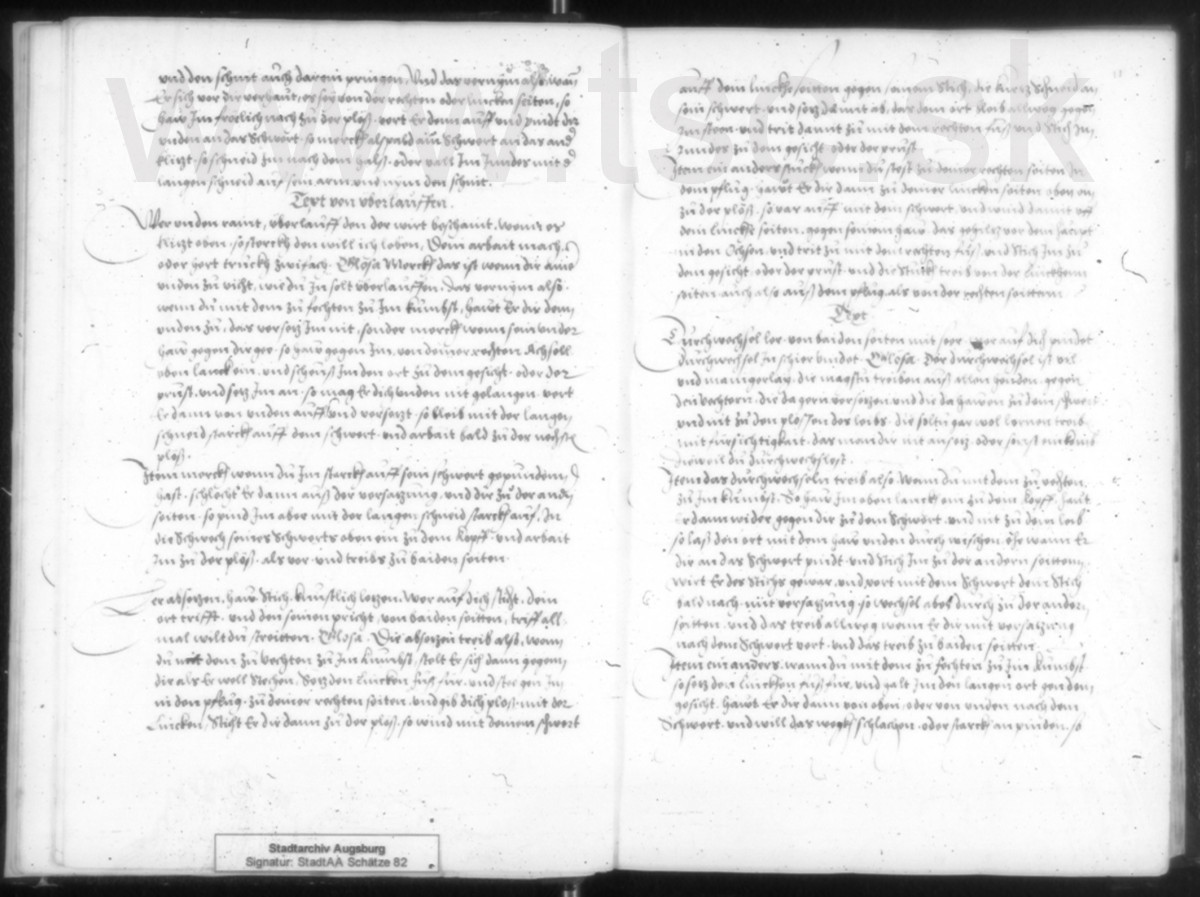 und den schnit auch darein pringen, Und das vernÿm also, wañ
Er sich vor dir verhaut, es seÿ von der rechten oder lincken seiten, so
haw Im frölich nach zů der plöß, vert Er dann auff und pindt dir
unden an das Schwert, so merck alspald ain Schwert an das and
klitzt, so schneid Im nach dem halß, oder vall Im Inndes mit d
langen schneid auf sein arm und nym den schnit.
Text von überlauffen.
Wer unden ramt, überlauff den der wirt beschamt, wenn es
klitzt oben, so sterck das will ich loben, Dein arbait mach,
oder hert truckh zwifach. Glosa Merck das ist wenn dir ainer
unden zů vicht, wie du In solt überlauffen. Das vernÿm also
wenn dů mit dem zů fechten zů Im kumbst, hawt Er dir dann
unden zů, das versetz Im nit, sonder merck wenn sein under
haw gegen dir geet, so haw gegen Im, von deiner rechten Achsell
oben lanck ein, und scheuß Im den ort zů dem gesicht, oder der
prust, und setz Im an, so mag Er dich unden nit gelangen, vert
Er dann von unden auff und versetzt, so bleib mit der langen
schneid starck auff dem schwert, und arbait bald zů der nechsten
plöß.
Item merck wenn dů Im starck auff sein schwert gepunden
hast, schlecht Er dann auß der versatzung, und dir zů der andn
seiten, so pind Im aber mit der langen schneid starck auf, In
die Schwech seines Schwerts oben ein zů dem kopff, und arbait
Im zů der plöß, als vor, und treibs zů baiden seiten.
Ler absetzen, haw stich künstlich letzen, Wer auf dich sticht, dein
ort trifft, und den seinen pricht, von baiden seiten, triff all
mal wiltdu streitten. Glosa. Die absetzen treib also, wenn
dů mit dem zů vechten zů Im kumbst, stelt Er sich dann gegen
dir als Er well stechen, Setz den lincken fuß für, und stee gen Im
in den pflug, zů deiner rechten seiten, und gib dich ploß mit der
Lincken, Sticht Er dir dann zů der ploß, so wind mit deinem schwert
auff dein lincke seiten gegen seinem Stich, die kurtz schneid an
sein schwert, und setz damit ab, das dein ort bleib allweg gegen
Im steen, und trit damit zů mit dem rechten fuß, und Stich Im
Inndes zů dem gesicht, oder der prust.
Item ein anders stuckh, wenn du stest zů deiner rechten seiten In
dem pflug, hawt Er dir dann zů deiner lincken seiten oben ein
zů der plöß, so var auff mit dem schwert, und wind damit uff
dein lincke seiten, gegen seinem haw, das gehiltz vor dem haubt
in den Ochsen, und trit zů mit dem rechten fuß, und stich Im zů
dem gesicht, oder der prust, und die Stuck treib von der linckhen
seiten auch also auß dem pflug, als von der rechten seitten.
Text
Durchwechsel ler, von baiden seiten mit seer, wer auf dich pindet
durchwechsel In schier vindet. Glosa. Der durchwechsel ist vil
und mainigerlay, die magstu treiben auß allen heuden, gegen
den vechtern, die da gern versetzen, und die da hawen zů dem schwert
und nit zů den plössen des leibs, die soltu gar wol lernen treib
mit fursichtigkait, das man dir nit ansetz, oder sonst einkome
dieweil dů durchwechslest.
Item das durchwechseln treib also, Wenn dů mit dem zů vechten
zů Im kumbst, So haw Im oben lanck ein zů dem kopff, hawt
Er dann wider gegen dir zů dem Schwert, und nit zů dem leib
so laß den ort mit dem haw unden durch wischen, Ehe wann Er
dir an das Schwert pindt, und Stich Im zů der andern seitten,
Wirt Er des Stichs gewar, und vert mit dem Schwert dem Stich
bald nach, mit versatzung, so wechsel aber durch zů der ander
seitten, und das treib allweg wenn Er dir mit versatzung
nach dem Schwert vert, und das treib zů baiden seitten.
Item ein anders, wann dů mit dem zů fechten zů Im kumbst
so setz den lincken fuß fur, und halt Im den langen ort gen dem
gesicht, hawt Er dir dann von oben, oder von unden nach dem
Schwert, und will das wegk schlachen, oder starck an pinden, so
Stadtarchiv Augsburg
Signatur: StadtAA Schätze 82
www.tso.sk